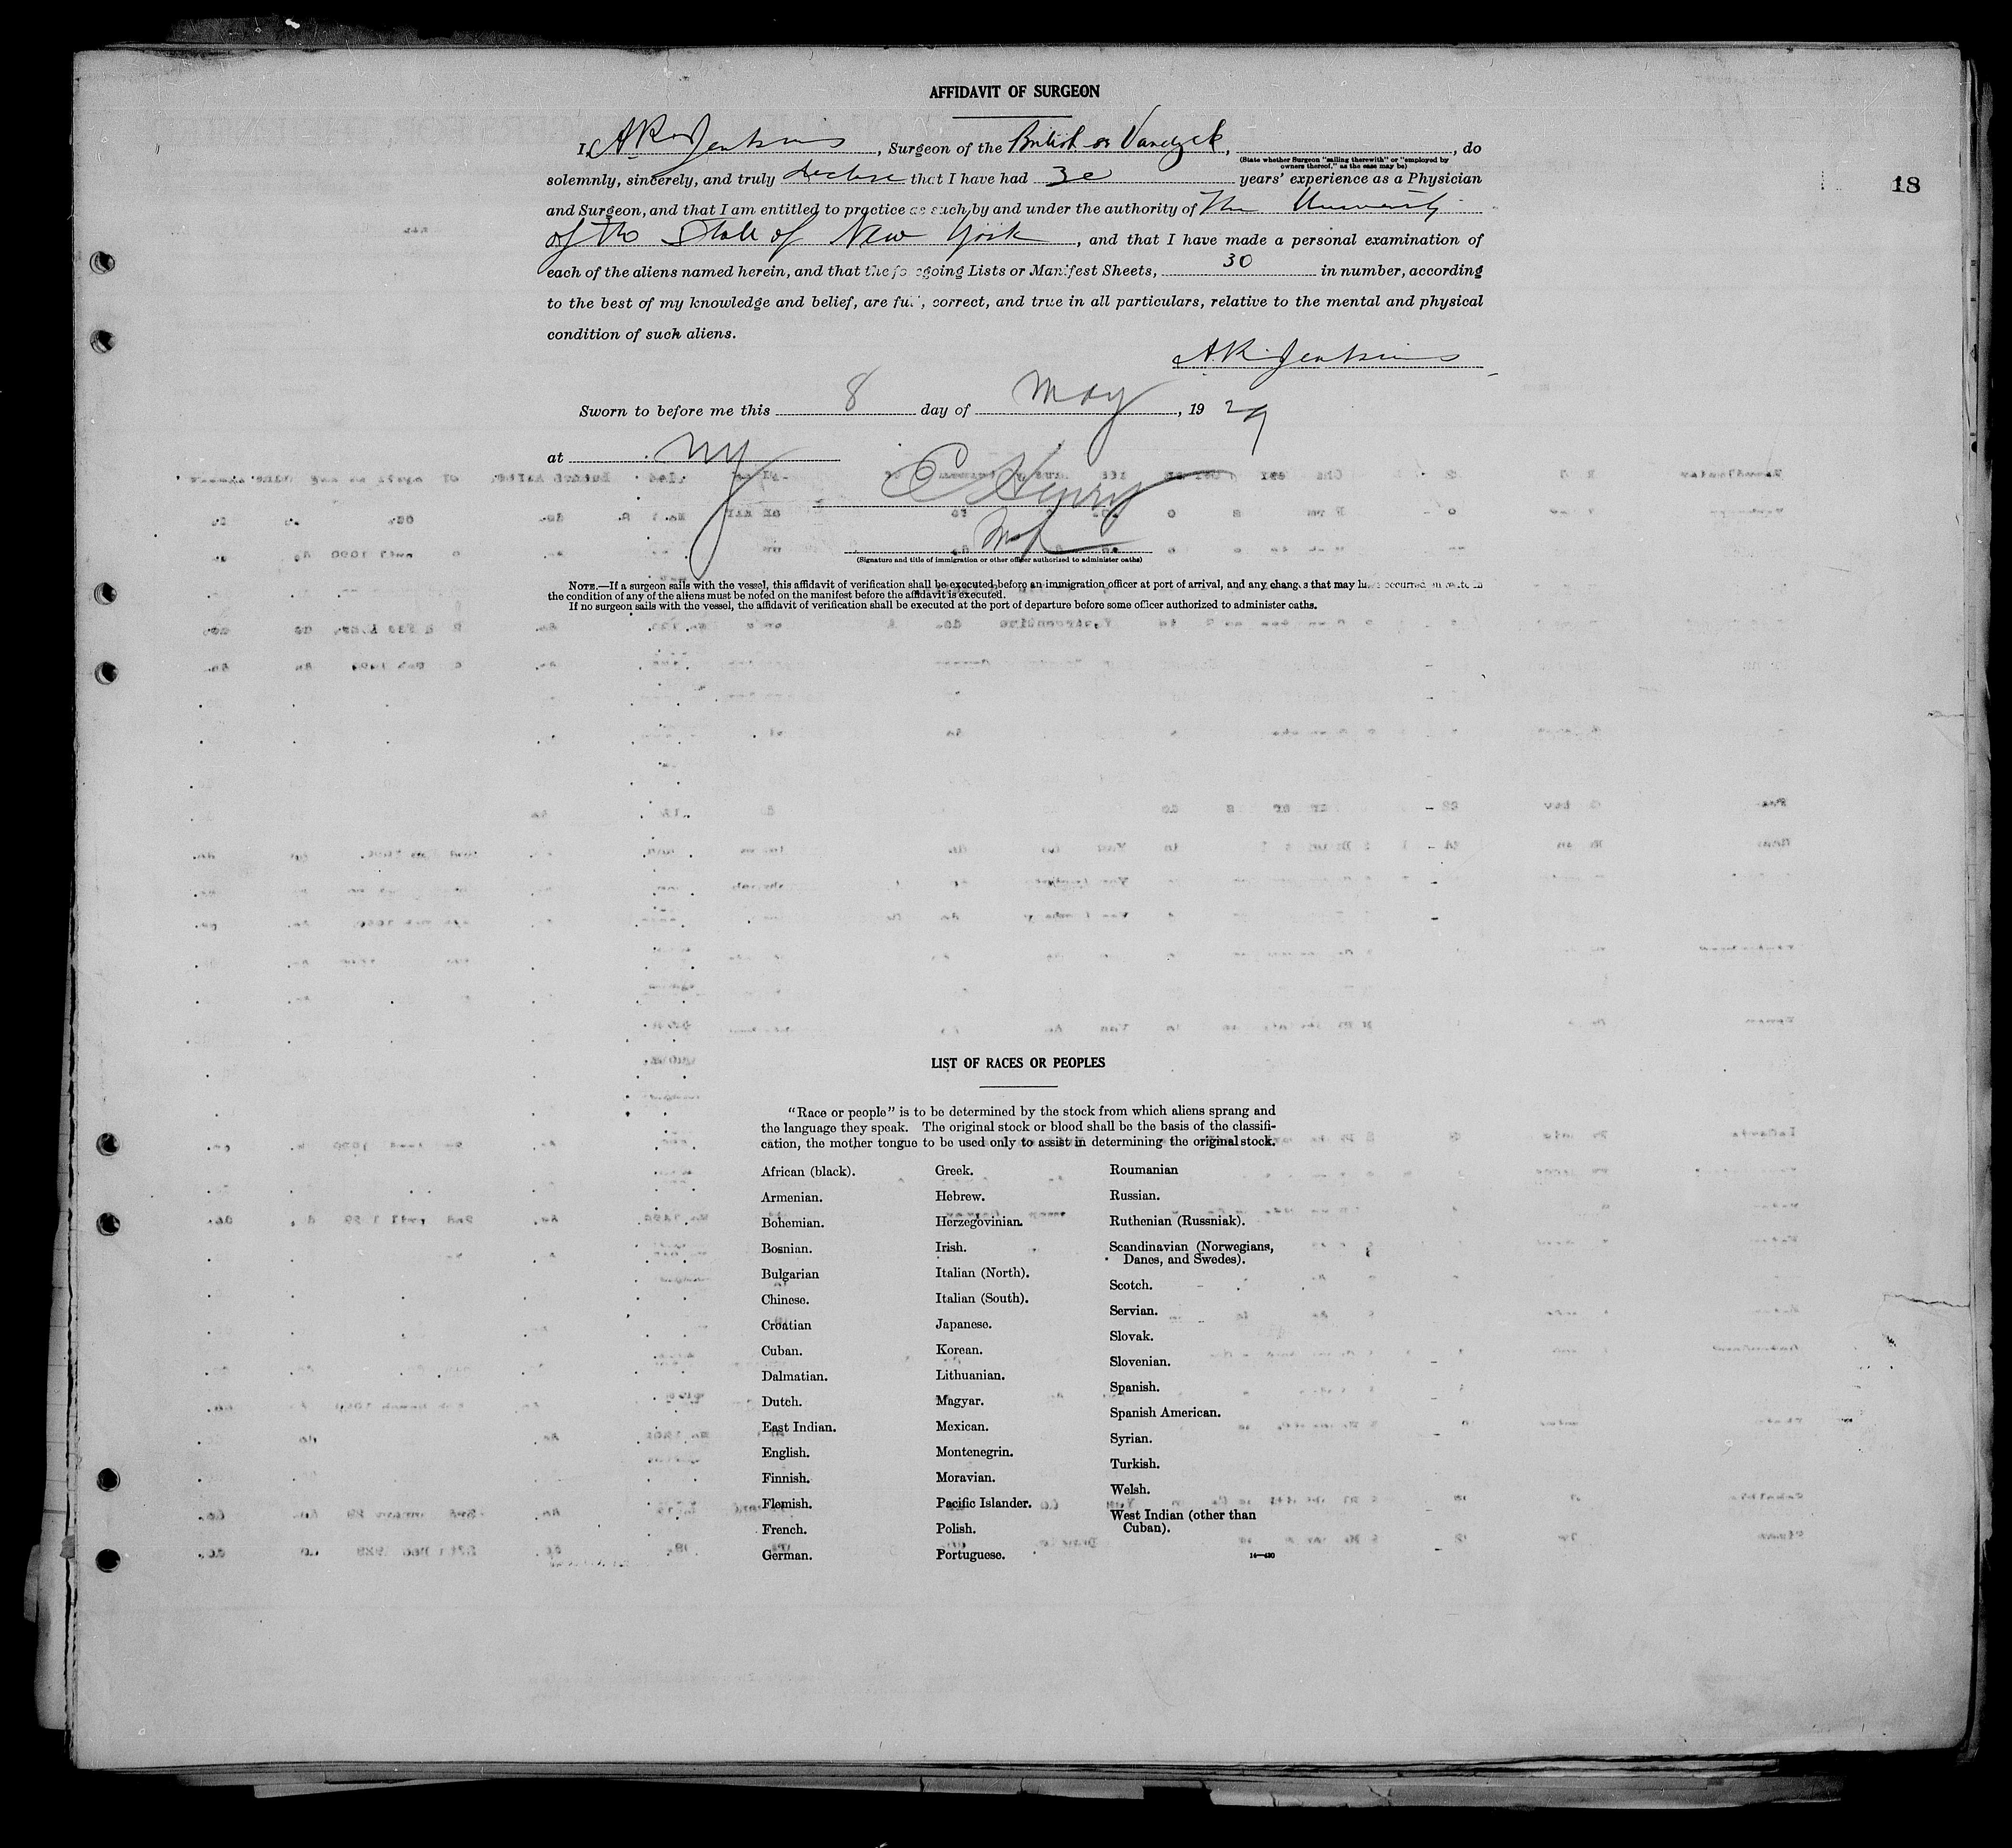 AFFIDAVIT OF SURGEON
I, A.R. Jenkins, Surgeon of the British ss Vandyck, , do
(State whether Surgeon "sailing therewith" or "employed by
owners thereof," as the case may be)
solemnly, sincerely, and truly declare that I have had 30 years' experience as a Physician
18
and Surgeon, and that I am entitled to practice as such by and under the authority of The University
of the State of New York, and that I have made a personal examination of
each of the aliens named herein, and that the foregoing Lists or Manifest Sheets, 30 in number, according
to the best of my knowledge and belief, are full, correct, and true in all particulars, relative to the mental and physical
condition of such aliens.
A.R. Jenkins
Sworn to before me this 8 day of May, 19 29
at NY
C Henry
(Signature and title of immigration or other officer authorized to administer oaths)
NOTE.—If a surgeon sails with the vessel, this affidavit of verification shall be executed before an immigration officer at port of arrival, and any changes that may have occurred en route in
the condition of any of the aliens must be noted on the manifest before the affidavit is executed.
If no surgeon sails with the vessel, the affidavit of verification shall be executed at the port of departure before some officer authorized to administer oaths.
LIST OF RACES OR PEOPLES
"Race or people" is to be determined by the stock from which aliens sprang and
the language they speak. The original stock or blood shall be the basis of the classifi-
cation, the mother tongue to be used only to assist in determining the original stock.
African (black).
Armenian.
Bohemian.
Bosnian.
Bulgarian
Chinese.
Croatian
Cuban.
Dalmatian.
Dutch.
East Indian.
English.
Finnish.
Flemish.
French.
German.
Greek.
Hebrew.
Herzegovinian.
Irish.
Italian (North).
Italian (South).
Japanese.
Korean.
Lithuanian.
Magyar.
Mexican.
Montenegrin.
Moravian.
Pacific Islander.
Polish.
Portuguese.
Roumanian
Russian.
Ruthenian (Russniak).
Scandinavian (Norwegians,
Danes, and Swedes).
Scotch.
Servian.
Slovak.
Slovenian.
Spanish.
Spanish American.
Syrian.
Turkish.
Welsh.
West Indian (other than
Cuban).
14—430